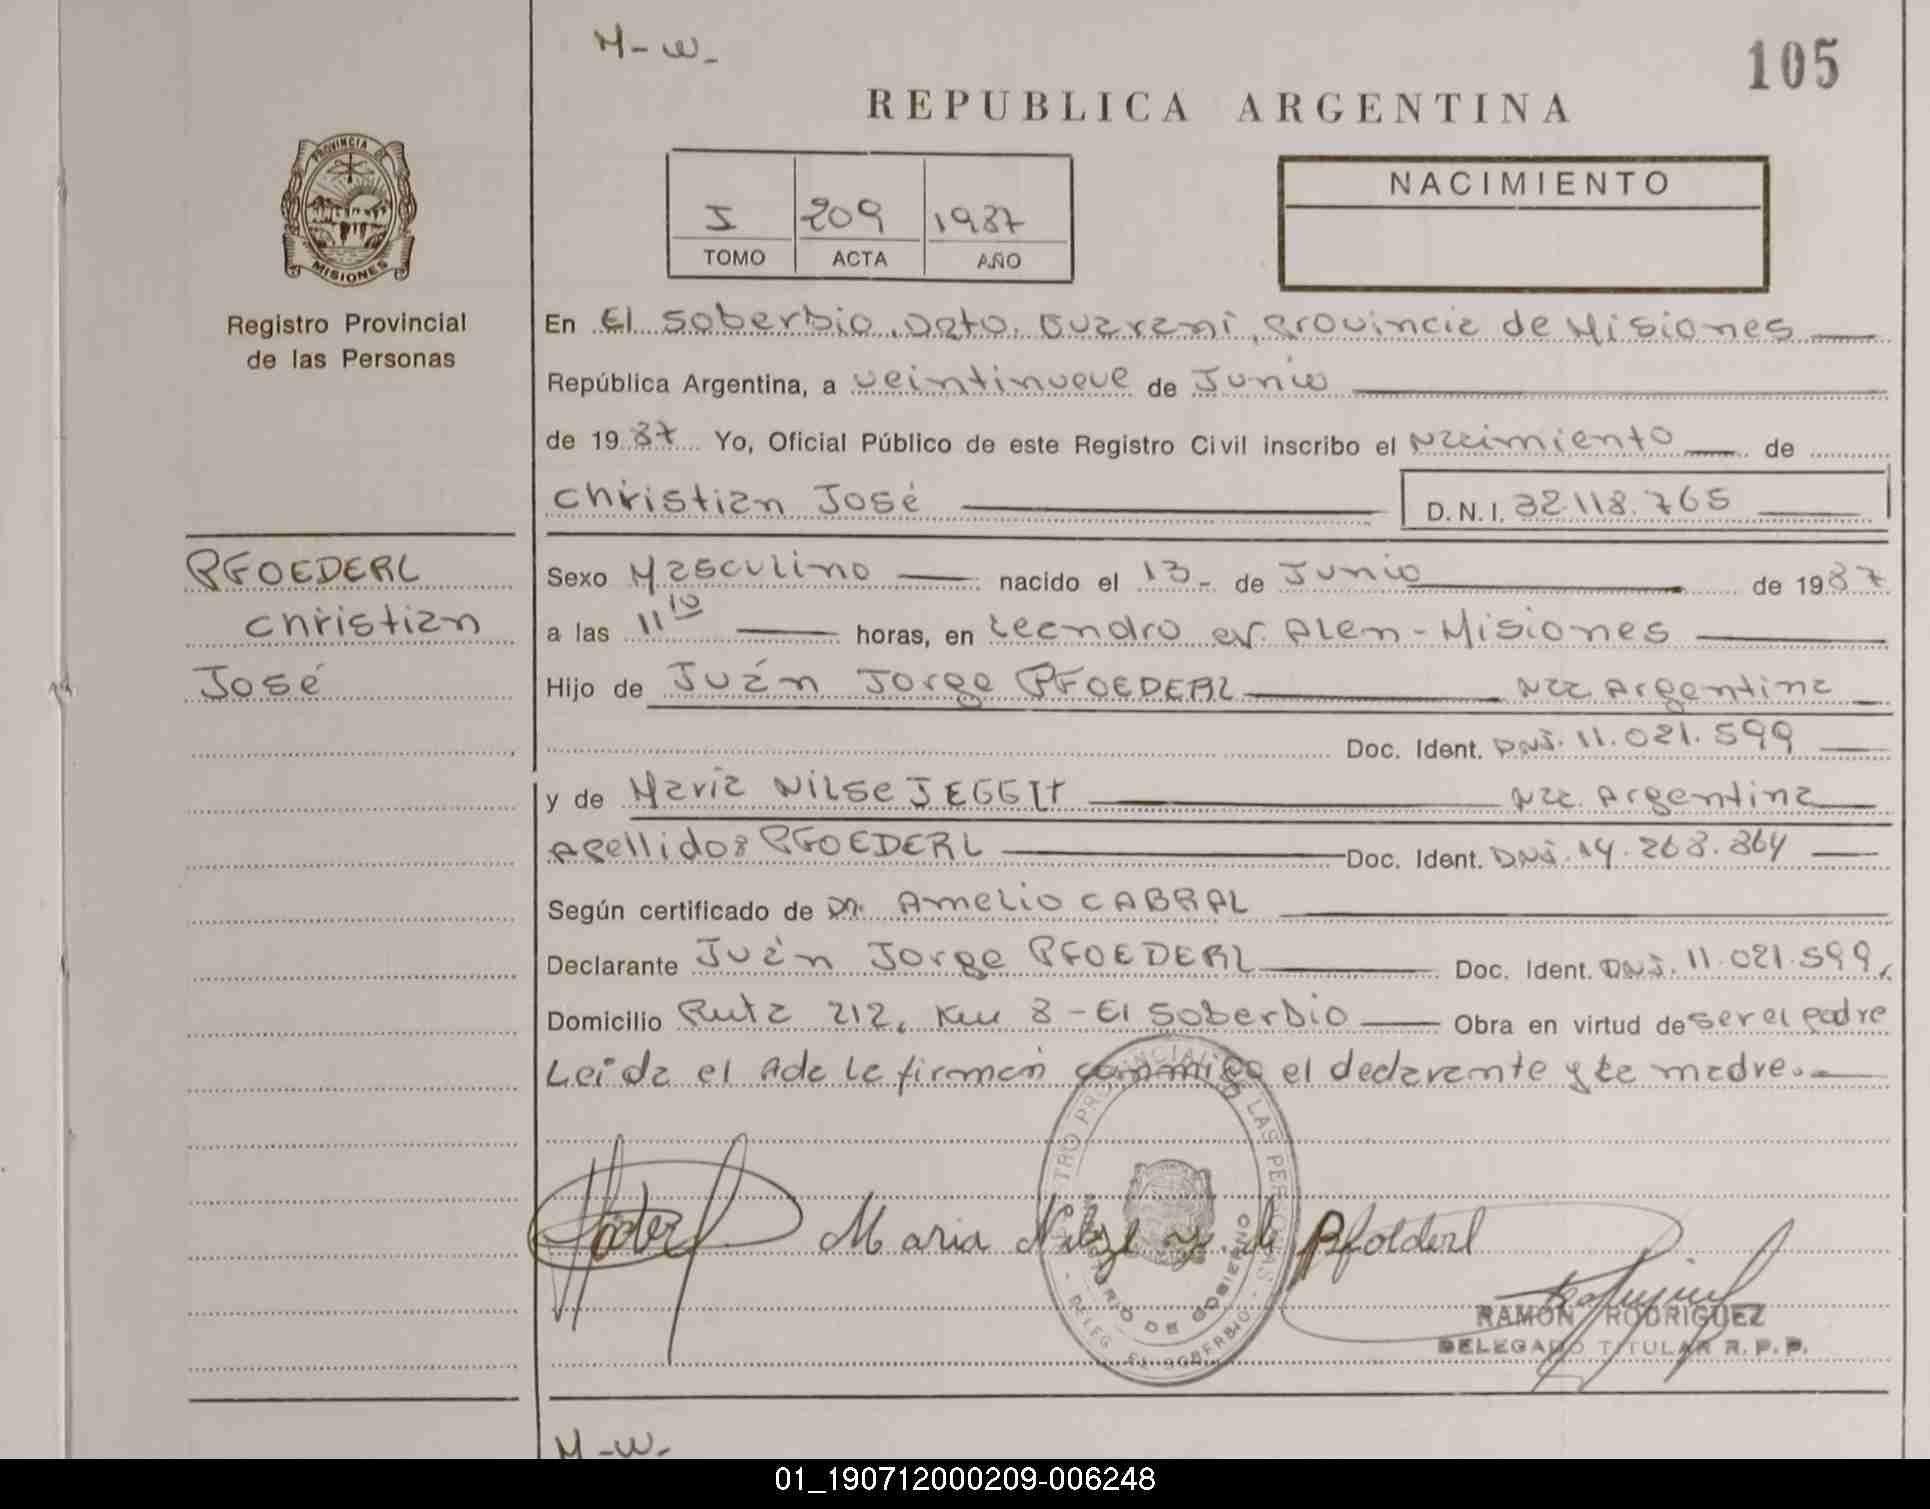 M-W-
105
REPUBLICA ARGENTINA
PROVINCIA DE
MISIONES
Registro Provincial
de las Personas
I 209 1987
TOMO ACTA AÑO
NACIMIENTO
En El Soberbio, Dpto. Guarani, provincia de Misiones
República Argentina, a veintinueve de Junio
de 1987 Yo, Oficial Público de este Registro Civil inscribo el Nacimiento de
Christian José D.N.I. 32.118.765
PFOEDERL
Christian
José
Sexo Masculino nacido el 13- de Junio de 1987
a las 11 10 horas, en Leandro N. Alem - Misiones
Hijo de Juán Jorge PFOEDERL Nac Argentina
Doc. Ident. DNI. 11.021.599
y de Maria Nilse Nac. Argentina
Apellidos PFOEDERL Doc. Ident. DNI. 14.268.864
Según certificado de Dr. Amelio CABRAL
Declarante Juán Jorge PFOEDERL Doc. Ident. DNI. 11.021.599,
Domicilio Ruta 212, Km 8 - El Soberbio Obra en virtud de ser el padre
Leida el Acta la firman conmigo el declarante y la madre.
REGISTRO PROVINCIAL DE LAS PERSONAS
MINISTERIO DE GOBIERNO
- DELEG. EL SOBERBIO -
Maria Nilze de Pfolderl
RAMON RODRIGUEZ
DELEGADO TITULAR R.P.P.
M-W-
01_190712000209-006248